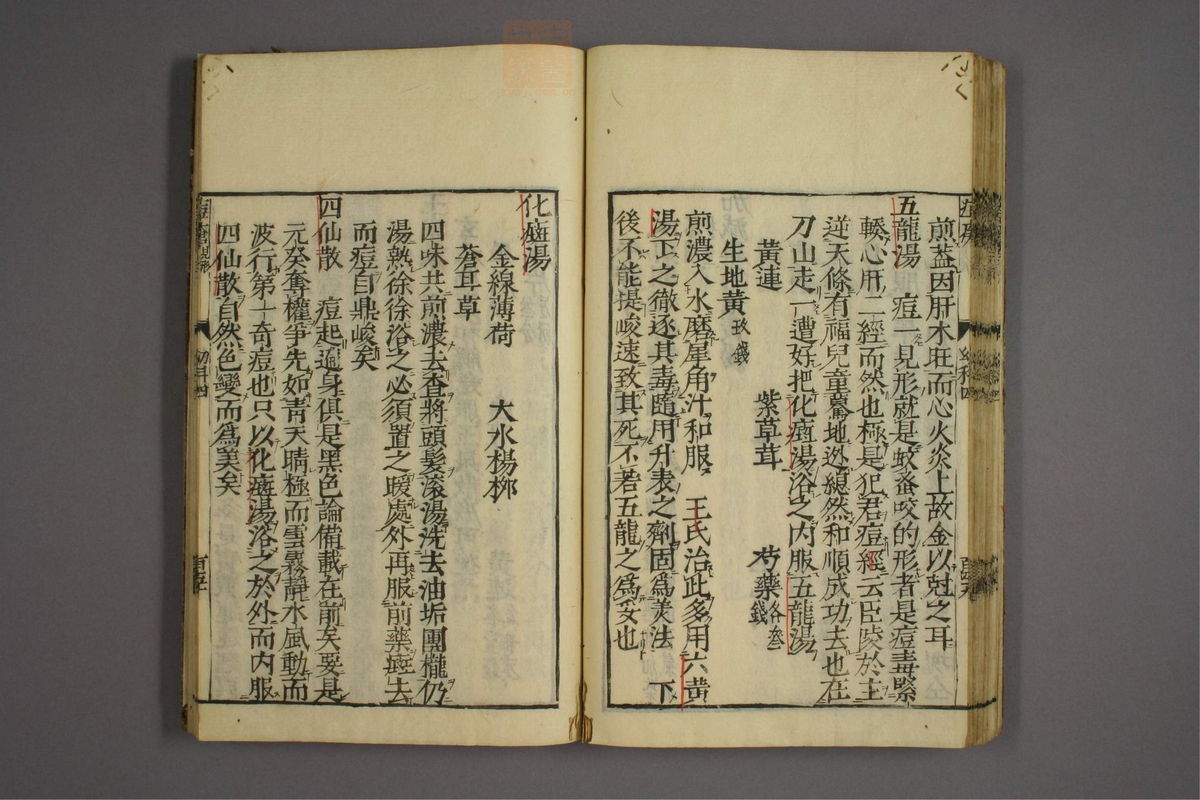 煎葢因肝木旺而心火炎上故金以尅之耳
五龍湯　痘一見形就是蚊蚤咬的形者是痘毒緊
轃心肝二經而然也極是犯君痘經云臣陵於主
逆天條有福兒童驀地逃縂然和順成功去也在
刀山走一遭好把化癍湯浴之内服五龍湯
黄連　紫草茸　芍藥各叁錢
生地黄玖錢
煎濃入水磨犀角汁和服　王氏治此多用六黄
湯下之徹逐其毒隨用升表之劑固爲美法　下
後不能提峻速致其死不若五龍之爲妥也
化癍湯
金線薄荷　大水楊柳
蒼耳草
四味共煎濃去査將頭髮滚湯洗去油垢團櫳仍
湯熱徐徐浴之必須置之暖處外再服前藥癍去
而痘自鼎峻矣
四仙散　痘起遍身俱是黑色論備載在前矣要是
元癸奪權爭先如青天晴極而雲霧靜水風動而
波行第十奇痘也只以化癍湯浴之於外而内服
四仙散自然色變而爲美矣